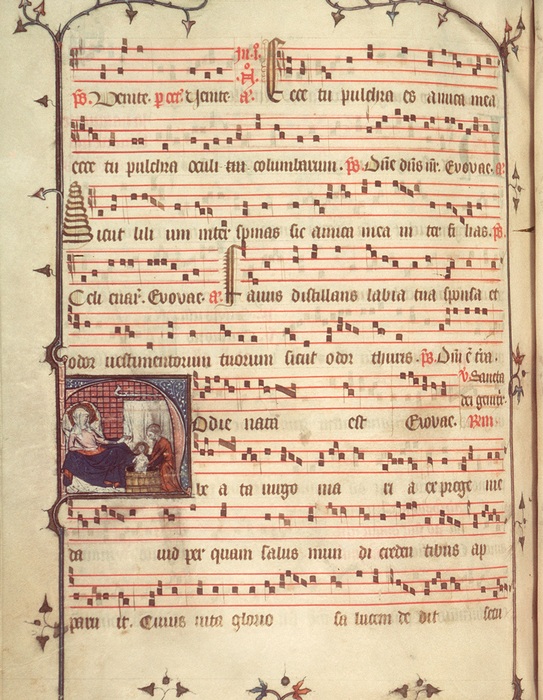 ps. Venite. Venite a.
Ecce tu pulchra es amica mea
ecce tu pulchra oculi tui columbarum. ps. Dñe dñs nr̃. Evovae. a.
Sicut lili um inter spinas sic amica mea in ter fi lias. ps.
Celi enar̃. Evovae. a. Favus distillans labia tua sponsa et
odor vestimentorum tuorum sicut odor thuris. ps. Dñi ẽ tr̃a.
v. Sancta
dei genitr̃.
Odie nata est Evovae. Rm̃
be a ta virgo ma ri a ex proge nie
da vid per quam salus mun di creden tibus ap
paru it. Cuius vita glorio sa lucem de dit secu